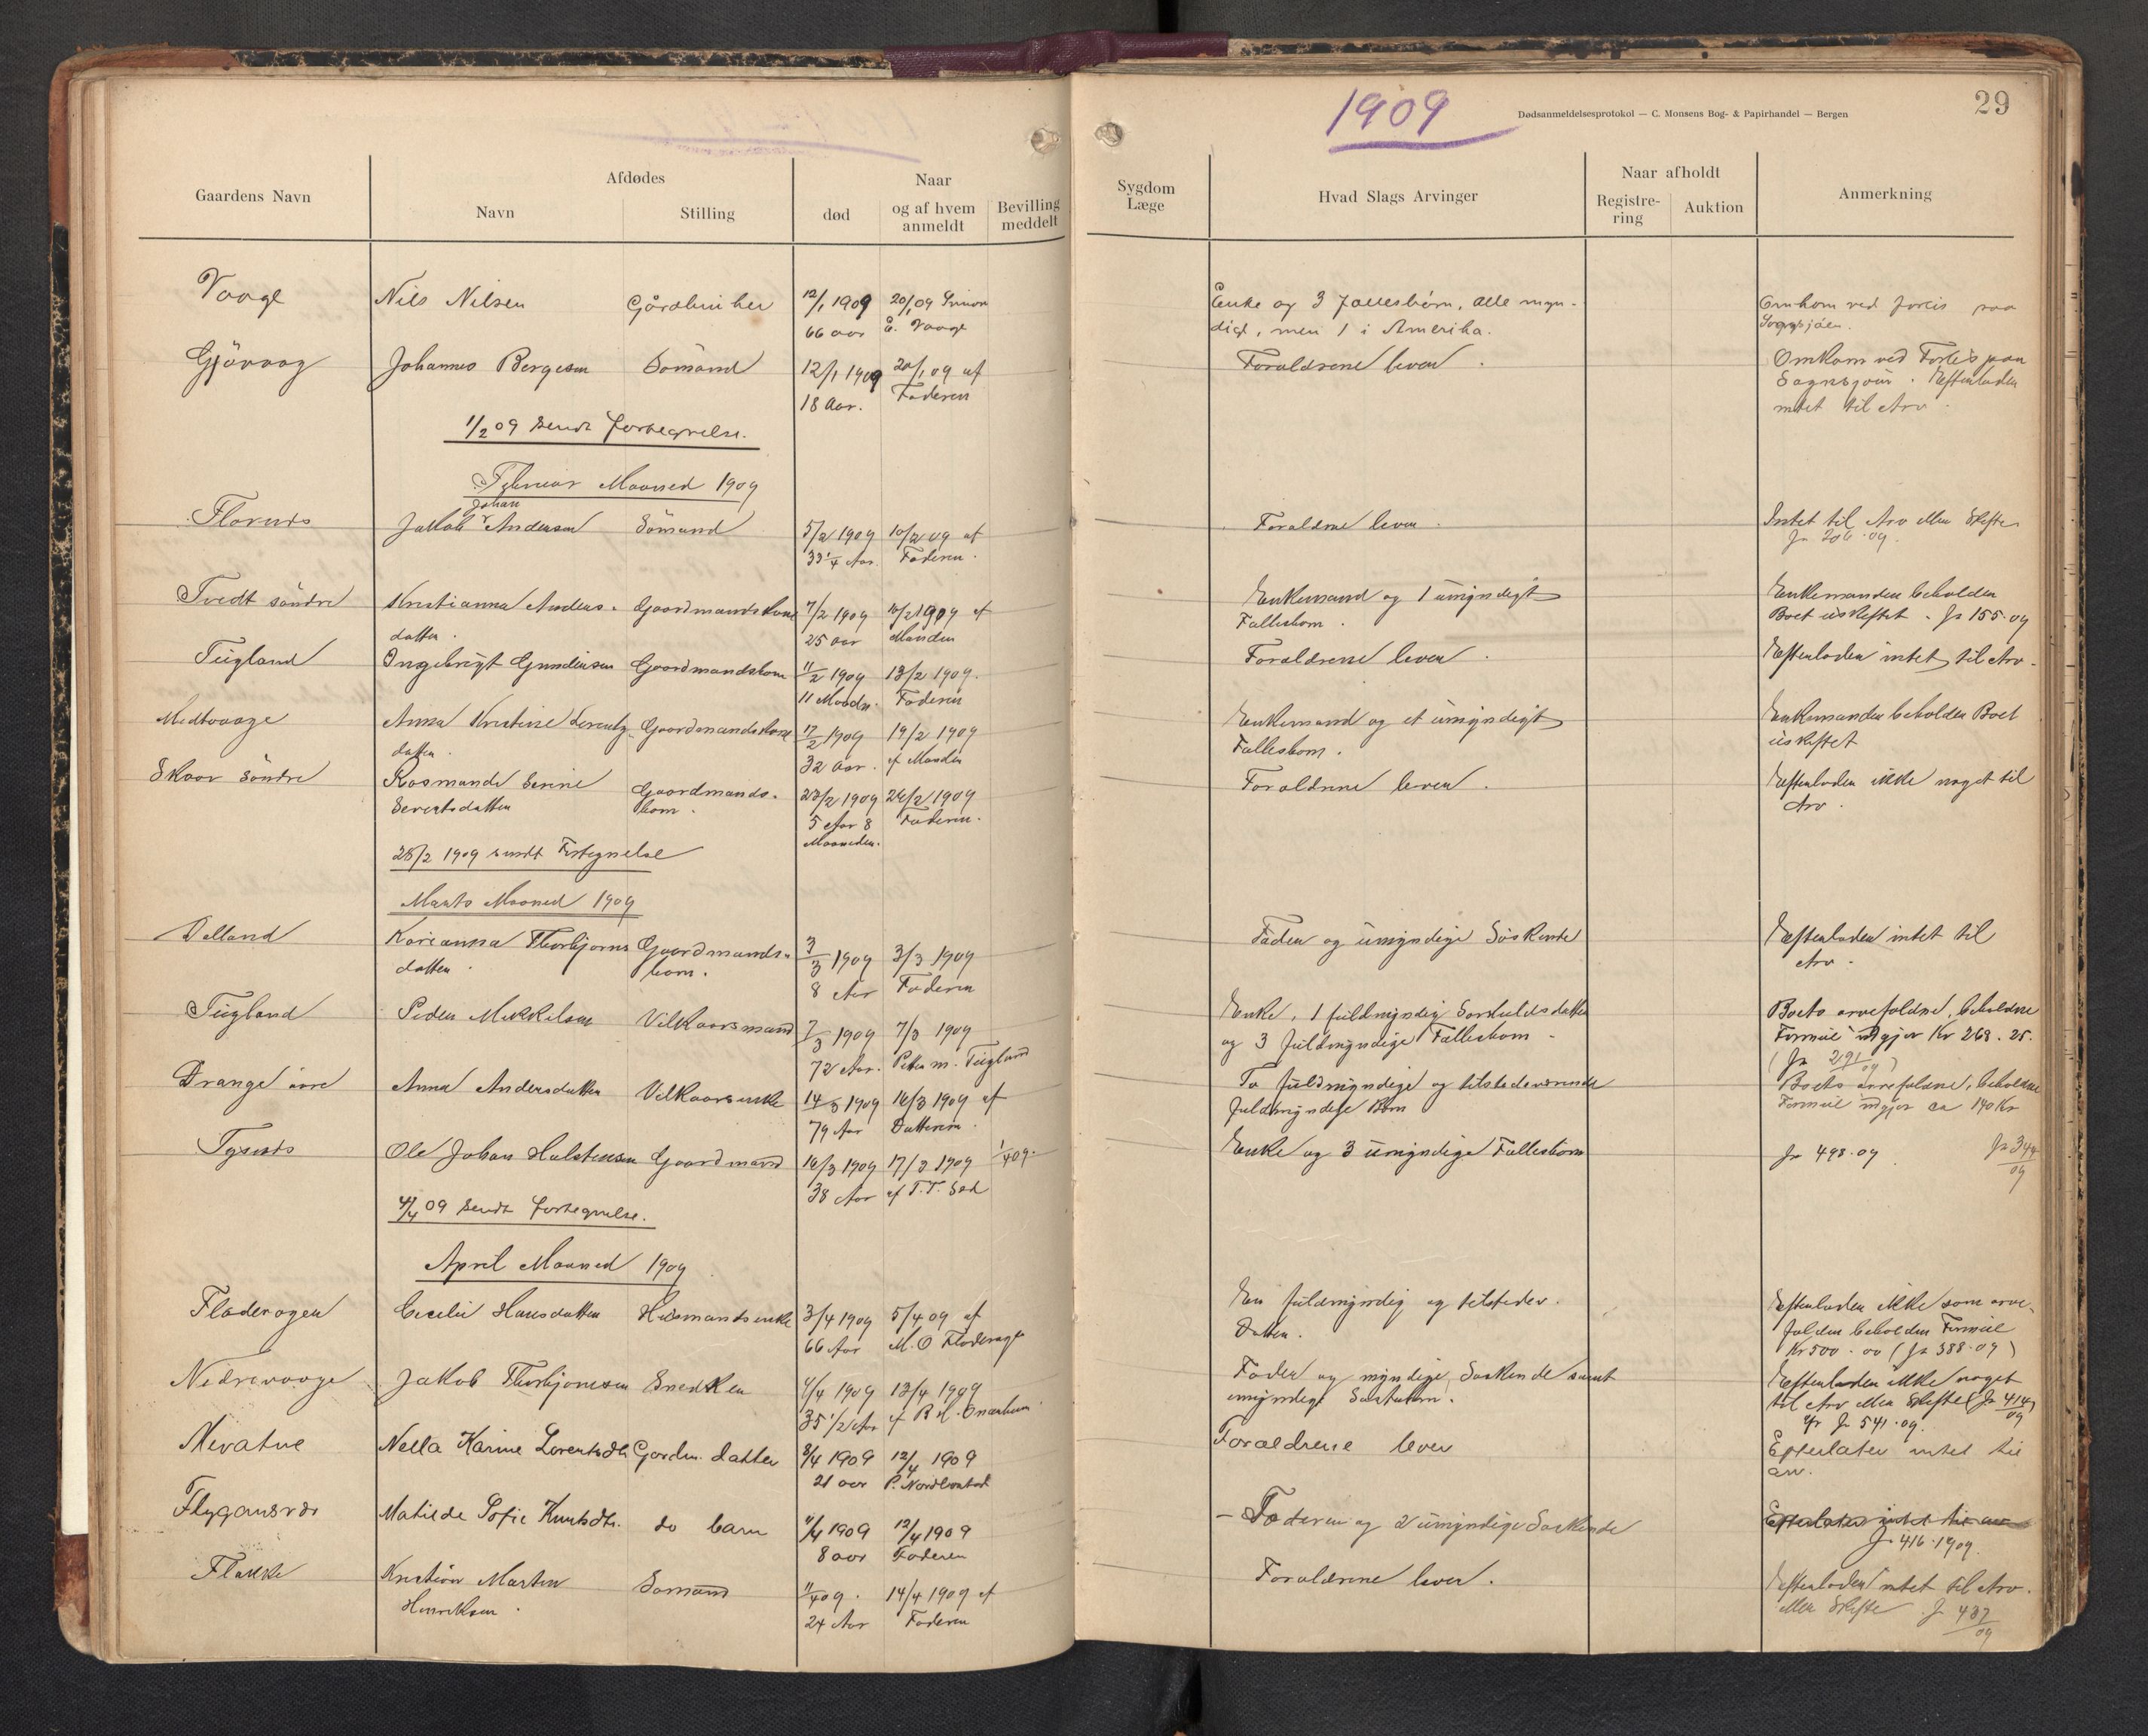 1909
Dødsanmeldelsesprotokol — C. Monsens Bog- & Papirhandel — Bergen
29
Gaardens Navn
Afdødes
Navn
Stilling
Naar
død
og af hvem
anmeldt
Bevilling
meddelt
Sygdom
Læge
Hvad Slags Arvinger
Naar afholdt
Registre-
ring
Auktion
Anmerkning
Vaage Nils Nilsen Gårdbruker 12/1 1909 20/1 09 Simon Enke og 3 fællesbörn, alle myn- Omkom ved forlis paa
66 aar E. Vaage dige, men 1 i Amerika. Sognsjöen.
Gjövaag Johannes Bergesen Sömand 12/1 1909 20/1 09 af Forældrene lever. Omkom ved Forlis paa
18 Aar. Faderen Sognsjöen. Efterlader
intet til Arv
1/2 09 sendt fortegnelse.
Februar Maaned 1909
Johan
Jakob Andersen Sömand 5/2 1909 10/2 09 af Forældrene lever. Intet til Arv eller Skifte
33 1/4 Aar. Faderen. Jr 206.09
Tvedt söndre Kristianna Anders- Gaardmandskone 7/2 1909 10/2 1909 af Enkemand og 1 umyndigt Enkemanden beholder
datter. 25 aar Manden Fællesbarn. Boet uskiftet. Jr 155.09
Tugland Ingebrigt Gundersen Gaardmandsbarn 11/2 1909 13/2 1909. Forældrene lever. Efterlader intet til Arv.
11 Maadr. Faderen
Medvaage Anna Kristine Lorentz- Gaardmandskone 17/2 1909 19/2 1909 Enkemand og et umyndigt Enkemanden beholder Boet
datter. 32 Aar. af Manden Fællesbarn. uskiftet
Skaar söndre Rasmande Serine Gaardmands- 23/2 1909 24/2 1909 Forældrene lever. Efterlader ikke noget til
Severtsdatter barn. 5 Aar 8 Faderen. Arv.
Maaneder.
28/2 1909 sendt Fortegnelse
Marts Maaned 1909
Dalland Karianna Thorbjorns Gaardmands- 3/3 1909 3/3 1909 Fader og umyndige Söskende Efterlader intet til
datter. barn. 8 Aar Faderen Arv.
Tugland Peder Mikkelsen Vilkaarsmand 7/3 1909 7/3 1909 Enke, 1 fuldmyndig Særkuldsdatter Boets arvefaldne, beholdne
72 Aar. Peder M. Tugland og 3 fuldmyndige Fællesbarn. Formue udgjör Kr 268.25.
(Jr 291/09)
Drange övre Anna Andersdatter Vilkaarsenke 14/3 1909 16/3 1909 af To fuldmyndige og tilstedeværende Boets arvefaldne, beholdne
79 Aar Datteren. fuldmyndige Börn Formue udgjör ca 140 Kr
Jr 344/09
Tysnes Ole Johan Halstensen Gaardmand 16/3 1909 17/3 1909 1/4 09. Enke og 3 umyndige Fællesbörn Jr 498.09
38 Aar af T.T.
4/4 09 sendt fortegnelse.
April Maaned 1909
Fladerogen Cecelie Hansdatter Husmandsenke 3/4 1909 5/4 09 af En fuldmyndig og tilstedev. Efterlader ikke som arve-
66 Aar M.O Datter. falden beholden Formue
Kr 500.00 (Jr 388.09)
Nedrevaage Jakob Thorbjornsen Snedker 4/4 1909 13/4 1909 Fader og myndige Söskende samt Efterlader ikke noget
35 1/2 Aar af B.H. Onarheim umyndige til Arv eller Skifte (Jr 414/09)
Jr 541.09.
Nevatne Nella Karine Lorentsdtr Gardm. datter 8/4 1909 12/4 1909 Forældrene lever Efterlater intet til
21 aar P. arv.
Flygansvær Matilde Sofie Knutsdtr. do barn 11/4 1909 12/4 1909 – Faderen og 2 umyndige Söskende Efterlater intet til arv
8 aar Faderen Jr 416.1909.
Flakke Kristian Martin Sömand 11/4 09. 14/4 1909 af Forældrene lever. Efterlader intet til Arv.
Henriksen. 24 Aar Faderen eller Skifte Jr 437/09